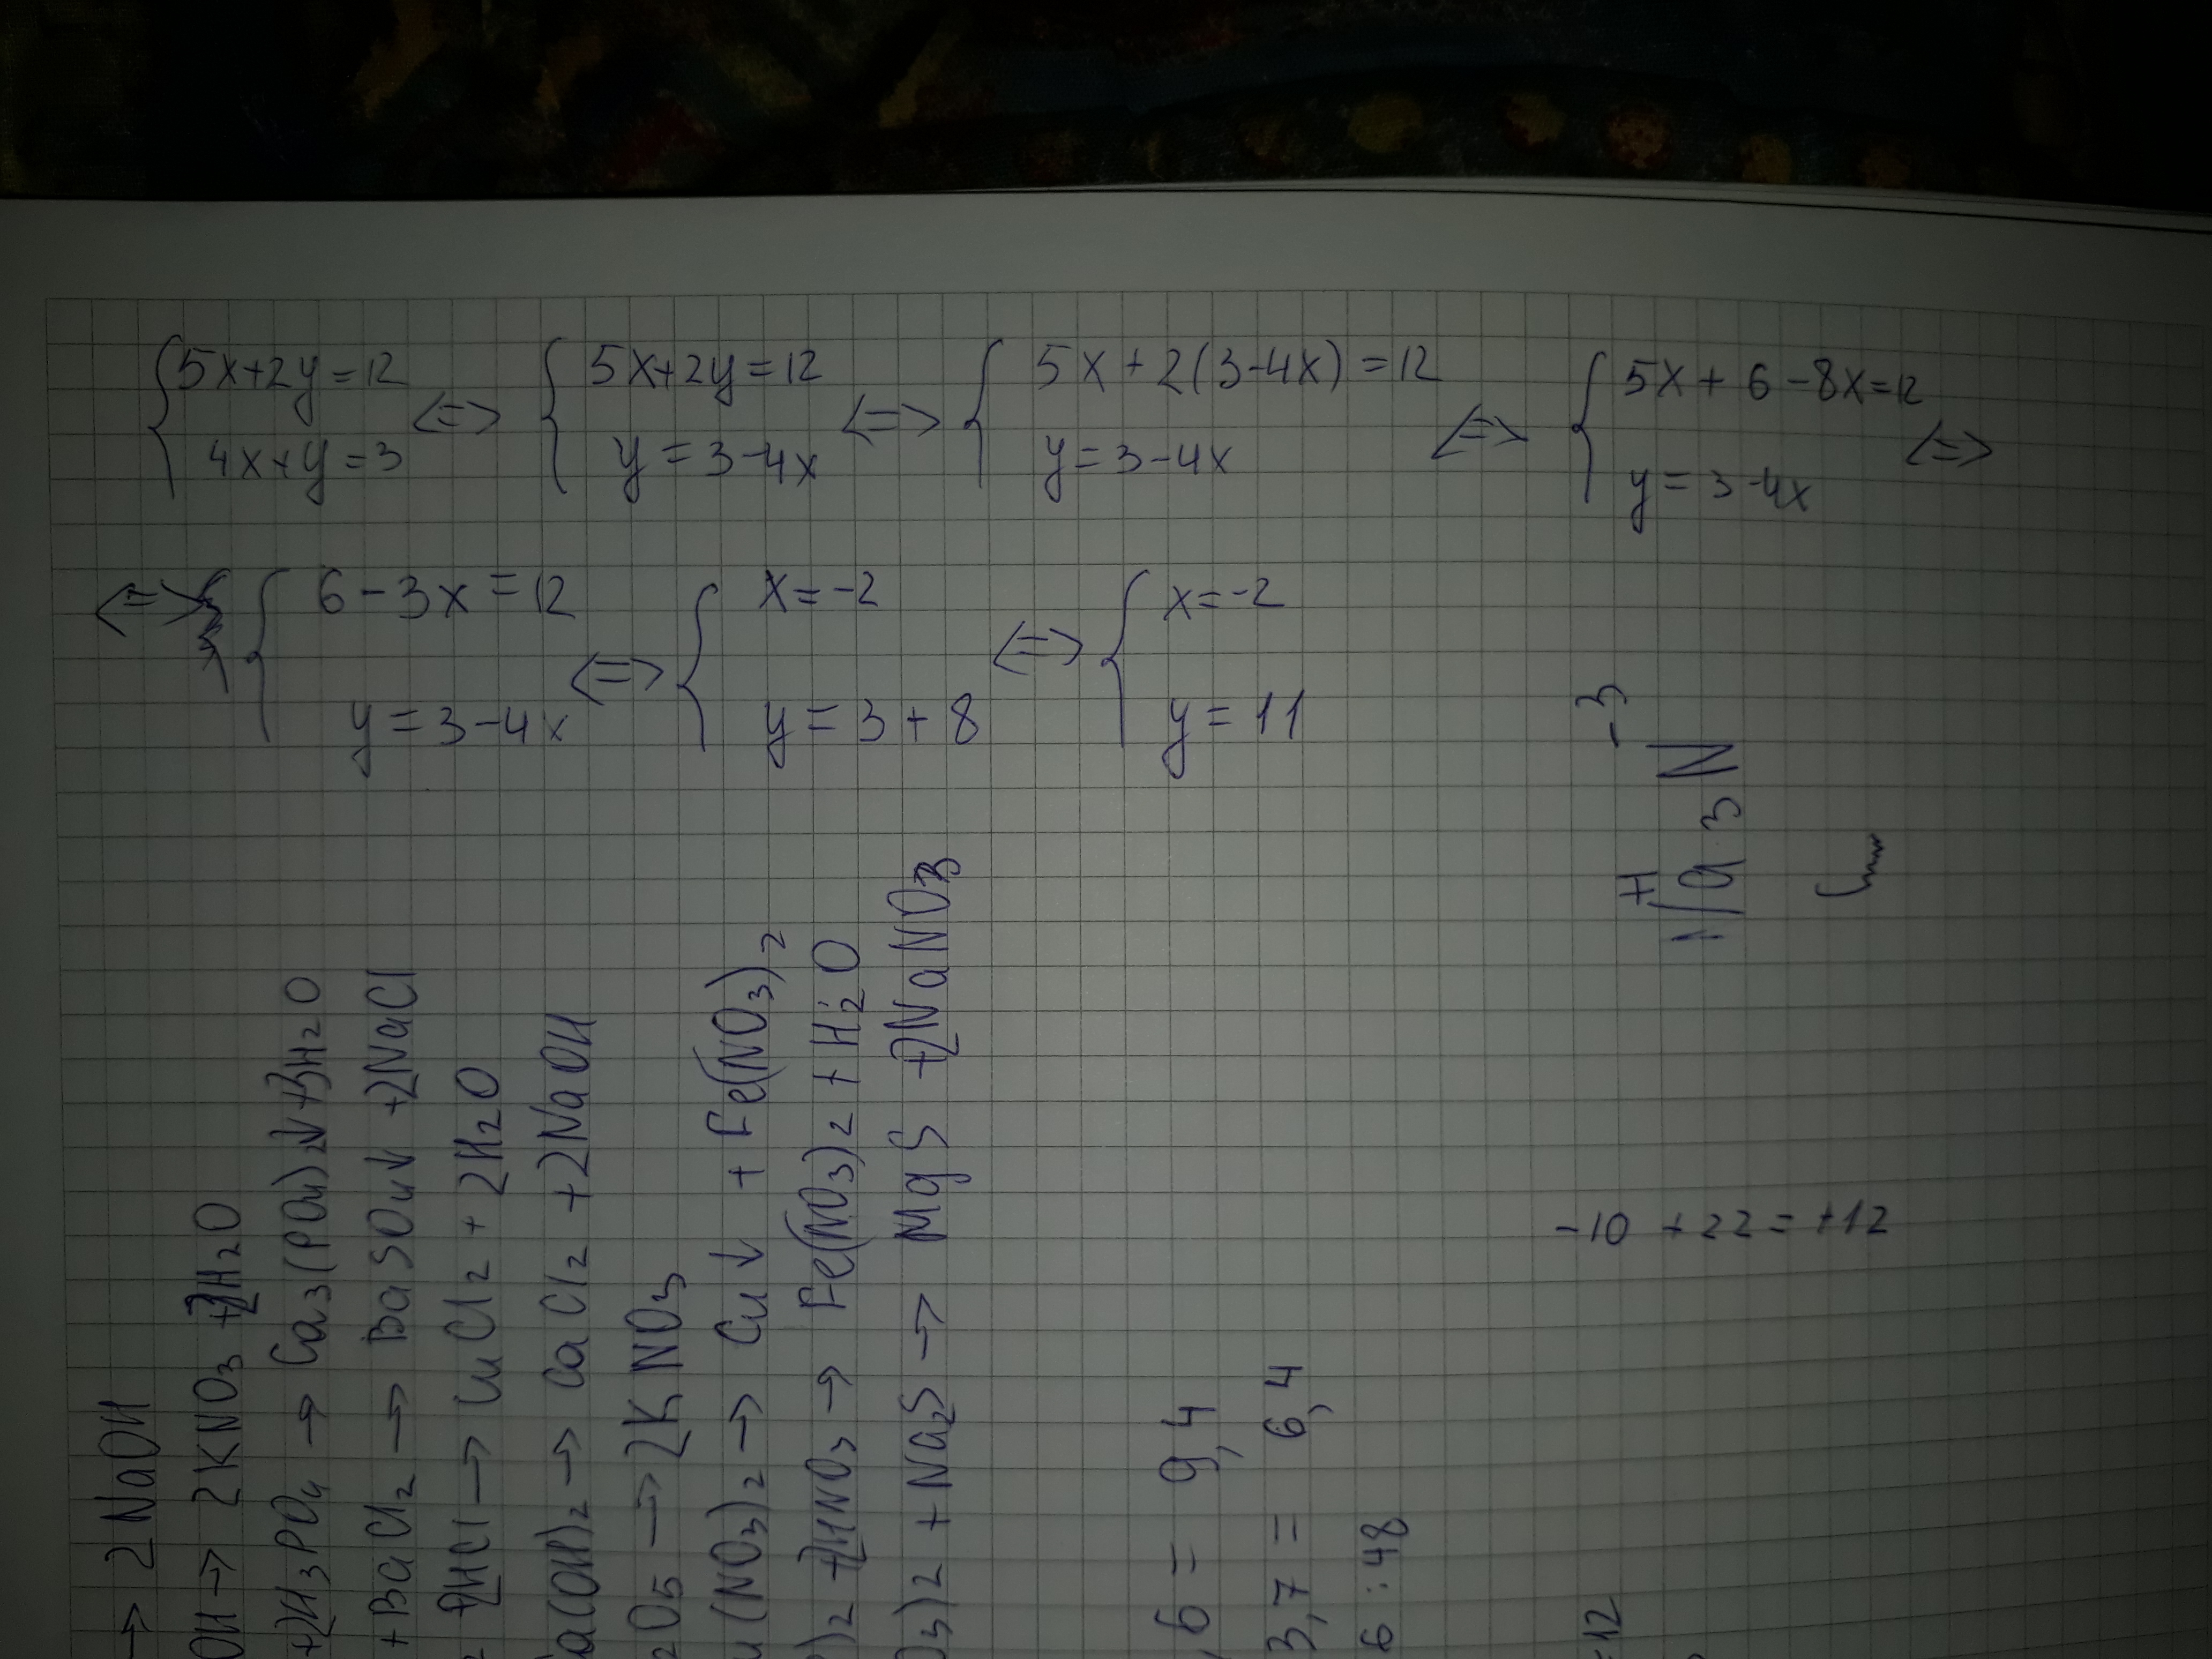 { 5x+2y=12 <=> { 5x+2y=12 <=> { 5x+2(3-4x)=12 <=> { 5x+6-8x=12 <=>
4x+y=3 y=3-4x y=3-4x y=3-4x
<=> { 6-3x=12 <=> { x=-2 <=> { x=-2
y=3-4x y=3+8 y=11
→ 2NaOH
OH → 2KNO3 + H2O
+2H3PO4 → Ca3(PO4)2↓ + 3H2O
+ BaCl2 → BaSO4↓ + 2NaCl
2HCl → CuCl2 + 2H2O
a(OH)2 → CaCl2 + 2NaOH
2O5 → 2KNO3
u(NO3)2 → Cu↓ + Fe(NO3)2
)2 + 2HNO3 → Fe(NO3)2 + H2O
O3)2 + Na2S → MgS + 2NaNO3
,6 = 9,4
3,7 = 6,4
6:48
-3
Na3N
-10 + 22 = +12
=12